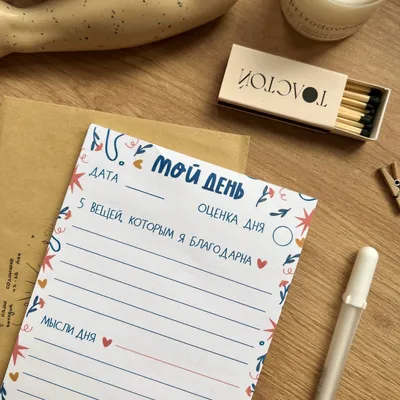 МОЙ ДЕНЬ
ДАТА
ОЦЕНКА ДНЯ
5 ВЕЩЕЙ, КОТОРЫМ Я БЛАГОДАРНА
МЫСЛИ ДНЯ
ТОЛСТОЙ